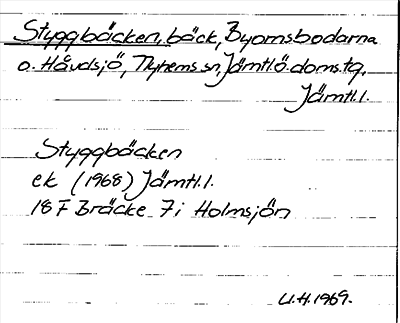 Styggbäcken, bäck, Byomsbodarna
o. Håvdsjö, Nyhems sn, Jämtl.ö.doms.tg.
Jämtl.l.
Styggbäcken
ek (1968) Jämtl.l.
18 F Bräcke 7i Holmsjön
U.H.1969.